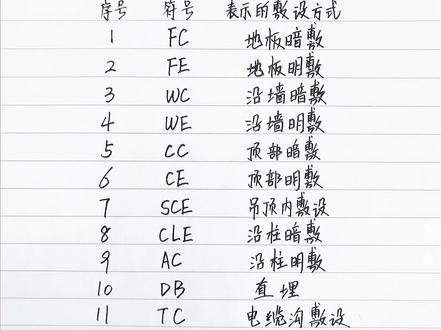 序号 符号 表示的敷设方式
1 FC 地板暗敷
2 FE 地板明敷
3 WC 沿墙暗敷
4 WE 沿墙明敷
5 CC 顶部暗敷
6 CE 顶部明敷
7 SCE 吊顶内敷设
8 CLE 沿柱暗敷
9 AC 沿柱明敷
10 DB 直埋
11 TC 电缆沟敷设